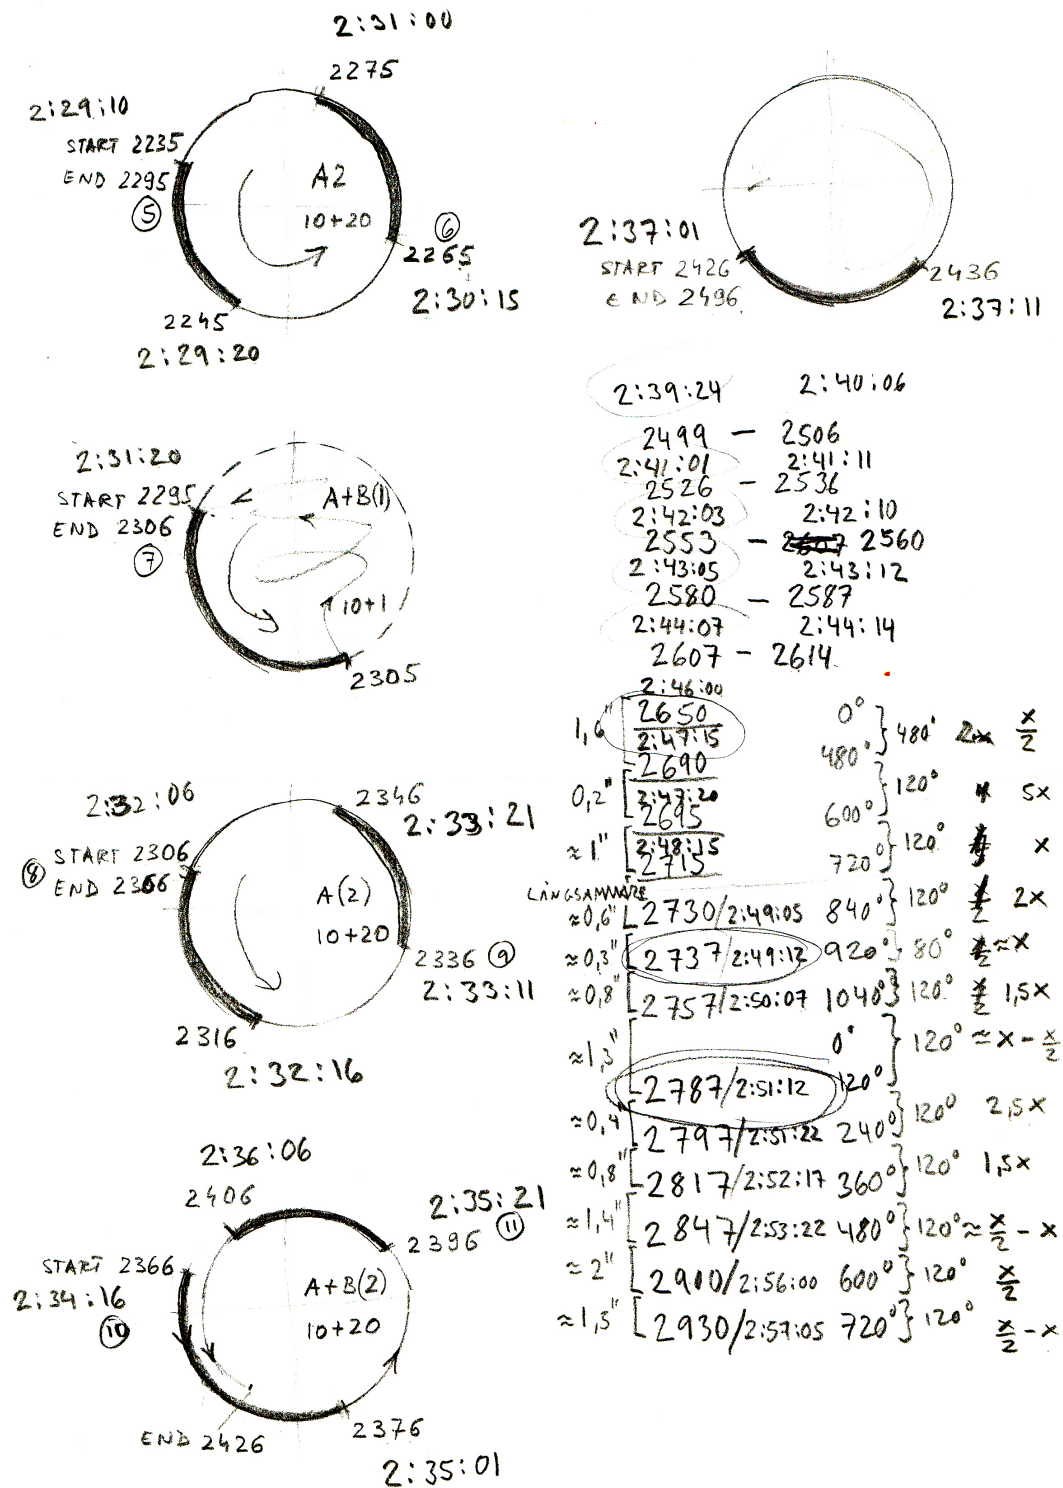 2:31:00
2275
2:29:10
START 2235
END 2295
5
A2
10+20
6
2265
2:30:15
2245
2:29:20
2:37:01
START 2426
END 2496
2436
2:37:11
2:31:20
START 2295
END 2306
7
A+B(1)
10+1
2305
2:39:24 2:40:06
2499 – 2506
2:41:01 2:41:11
2526 – 2536
2:42:03 2:42:10
2553 – 2560
2:43:05 2:43:12
2580 – 2587
2:44:07 2:44:14
2607 – 2614
2:46:00
1,6" [ 2650 0° } 480° 2x x/2
2:47:15
2690 480°
0,2" [ 2:47:20 } 120° 5x
2695 600°
≈1" [ 2:48:15 } 120° x
2715 720°
LÅNGSAMMARE
≈0,6" [ 2730/2:49:05 840° } 120° 2x
≈0,3" [ 2737/2:49:12 920° } 80° ≈x
≈0,8" [ 2757/2:50:07 1040° } 120° 1,5x
≈1,3" [ 0° } 120° ≈x-x/2
2787/2:51:12 120°
≈0,4" [ 2797/2:51:22 240° } 120° 2,5x
≈0,8" [ 2817/2:52:17 360° } 120° 1,5x
≈1,4" [ 2847/2:53:22 480° } 120° ≈x/2-x
≈2" [ 2900/2:56:00 600° } 120° x/2
≈1,3" [ 2930/2:57:05 720° } 120° x/2-x
2:32:06
2346
2:33:21
8
START 2306
END 2366
A(2)
10+20
2336 9
2:33:11
2316
2:32:16
2:36:06
2406
2:35:21
2396 11
START 2366
2:34:16
10
A+B(2)
10+20
END 2426
2376
2:35:01